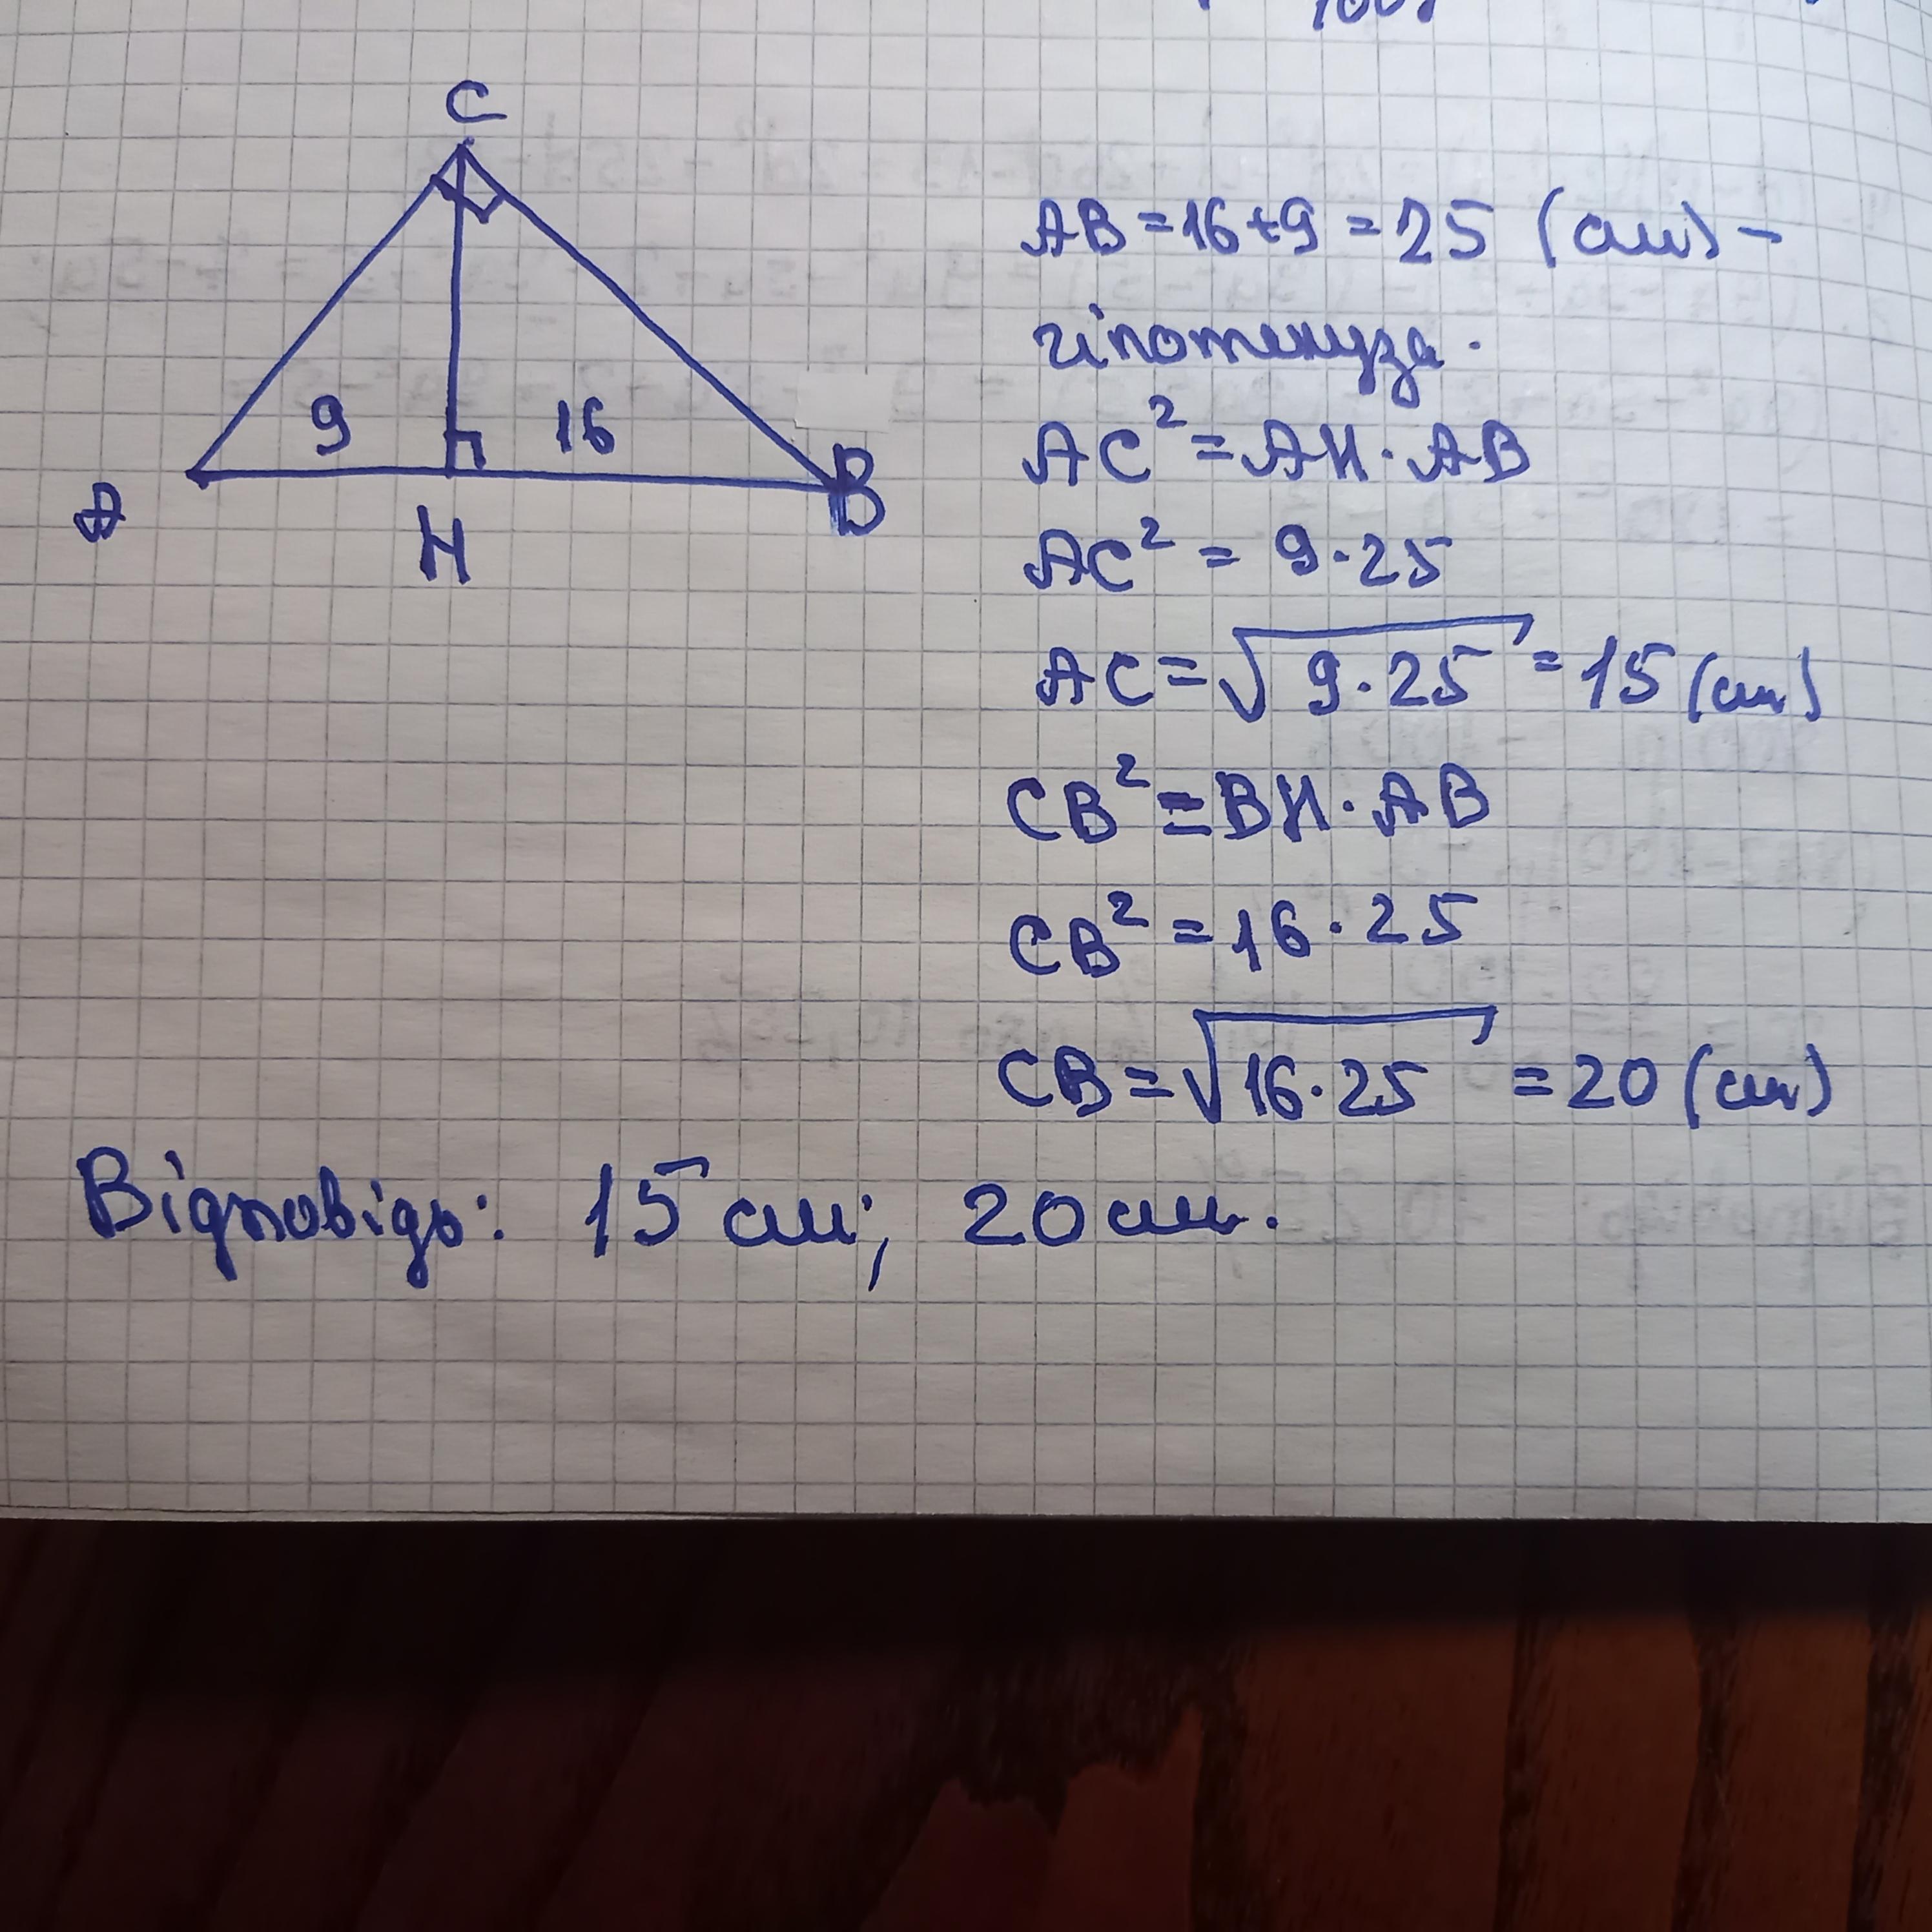 C
9
16
A
H
B
AB = 16 + 9 = 25 (см) -
гіпотенуза.
AC² = AH · AB
AC² = 9 · 25
AC = √9 · 25 = 15 (см)
CB² = BH · AB
CB² = 16 · 25
CB = √16 · 25 = 20 (см)
Відповідь: 15 см; 20 см.